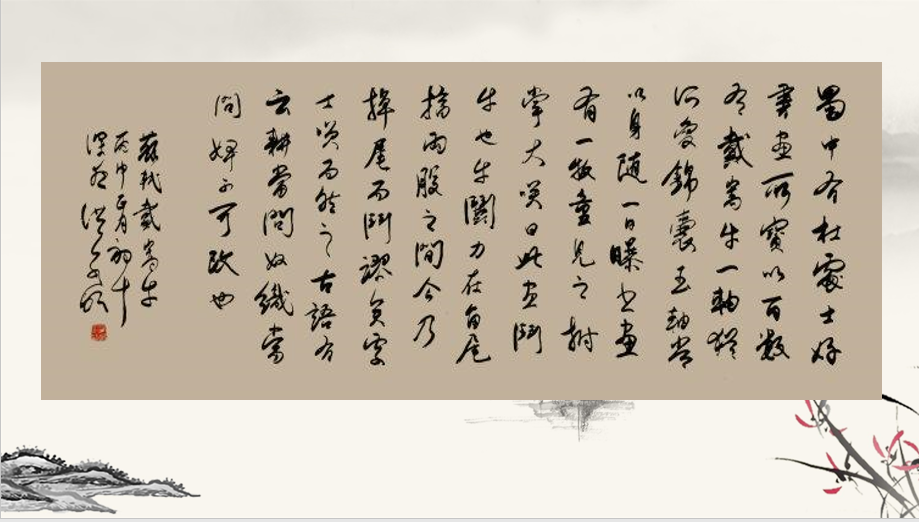 蜀中有杜處士好
書畫所寶以百數
有戴嵩牛一軸猶
所愛錦囊玉軸常
以身隨一日曝书畫
有一牧童見之拊
掌大笑曰此畫鬥
牛也牛鬭力在角尾
搐兩股之間今乃
掉尾而鬥謬矣處
士笑而然之古語有
云耕當問奴織當
問婢不可改也
蘇軾戴嵩牛
丙申正月初十